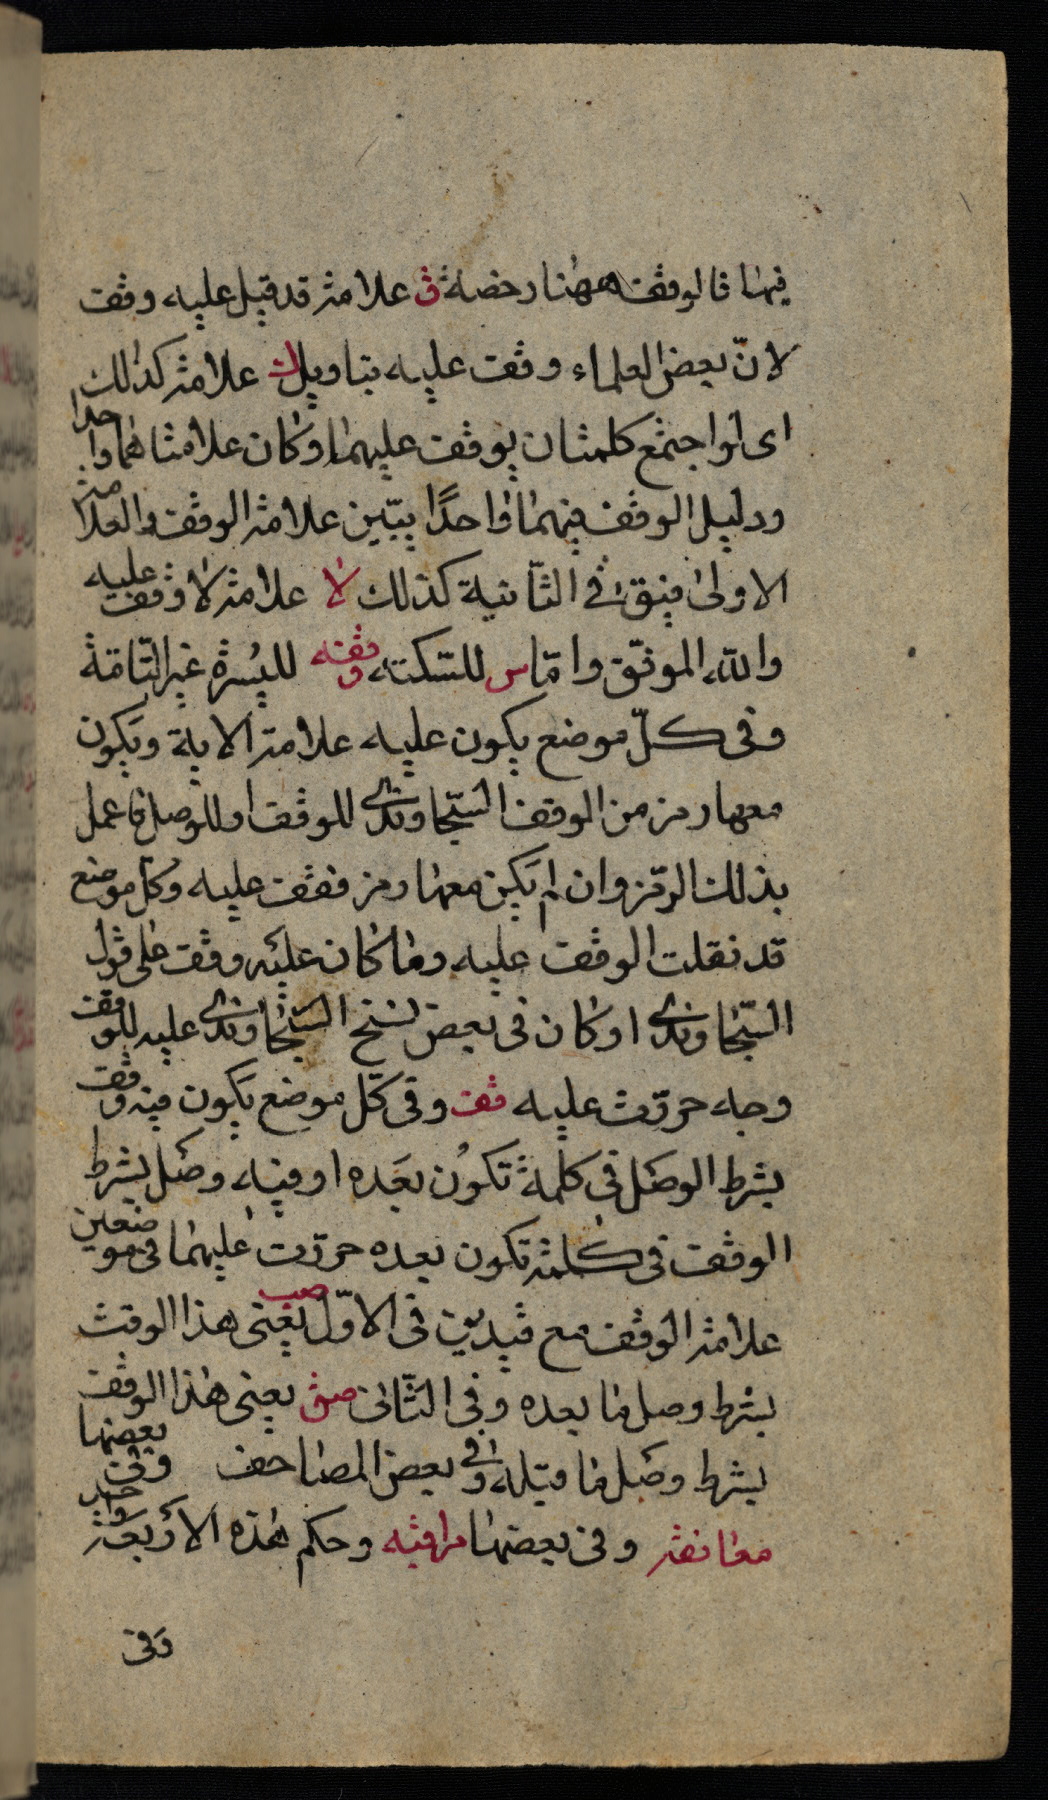 فيها فالوقف ههنا رخصة ق علامة قد قيل عليه وقف
لانّ بعض العلماء وقف عليه بتاويل ك علامة كذالك
اى لو اجتمع كلمتان يوقف عليهما وكان علامتاهما واحدا
ودليل الوقف فيهما واحدًا يبيّن علامة الوقف والعلامة
الاولى فبقى فى الثّانية كذلك لا علامة لا وقف عليه
والله الموفّق وامّا س للسّكتة وقفه لليُسرة غير التّامّة
وفى كلّ موضع يكون عليه علامة الاية ويكون
معها رمز من الوقف السّجاوندى للوقف او للوصل فاعمل
بذلك الرّمز وان لم يكن معها رمز فقف عليه وكل موضع
قد نقلت الوقف عليه وما كان عليه وقف على قول
السّجاوندى او كان فى بعض نسخ السّجاوندى عليه للوقف
وجه حرّرت عليه قف وفى كلّ موضع يكون فيه وقف
بشرط الوصل فى كلمة تكون بعده او فيه وصل بشرط
الوقف فى كلمة تكون بعده حرّرت عليهما فى موضعين
علامة الوقف مع قيدين فى الاوّل صب يعنى هذا الوقف
بشرط وصل ما بعده وفى الثّانى صق يعنى هذا الوقف
بشرط وصل ما قبله وفى بعض المصاحف وفى بعضها
معانقة وفى بعضها مراقبة وحكم هذه الاربعة واحد
وفى